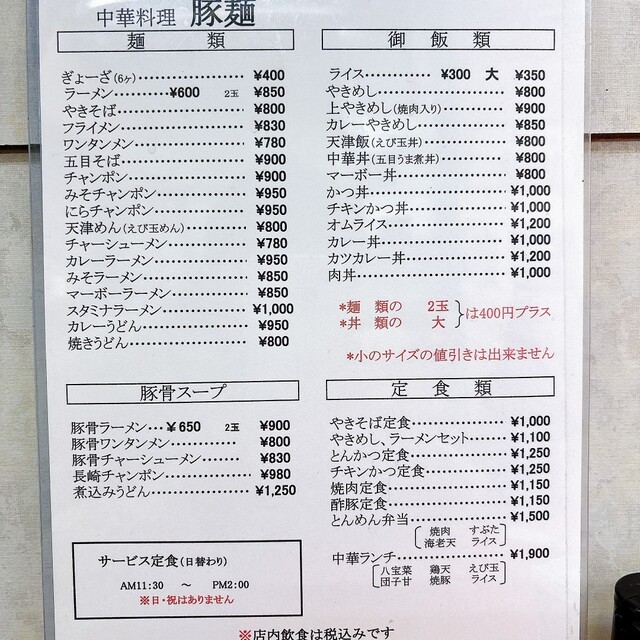 中華料理 豚麺
麺 類
ぎょーざ(6ヶ) ¥400
ラーメン ¥600 2玉 ¥850
やきそば ¥800
フライメン ¥830
ワンタンメン ¥780
五目そば ¥900
チャンポン ¥900
みそチャンポン ¥950
にらチャンポン ¥950
天津めん(えび玉めん) ¥800
チャーシューメン ¥780
カレーラーメン ¥950
みそラーメン ¥850
マーボーラーメン ¥850
スタミナラーメン ¥1,000
カレーうどん ¥950
焼きうどん ¥800
豚骨スープ
豚骨ラーメン ¥650 2玉 ¥900
豚骨ワンタンメン ¥800
豚骨チャーシューメン ¥830
長崎チャンポン ¥980
煮込みうどん ¥1,250
サービス定食(日替わり)
AM11:30 ~ PM2:00
※日・祝はありません
御 飯 類
ライス ¥300 大 ¥350
やきめし ¥800
上やきめし(焼肉入り) ¥900
カレーやきめし ¥850
天津飯(えび玉丼) ¥800
中華丼(五目うま煮丼) ¥800
マーボー丼 ¥800
かつ丼 ¥1,000
チキンかつ丼 ¥1,000
オムライス ¥1,200
カレー丼 ¥1,000
カツカレー丼 ¥1,200
肉丼 ¥1,000
*麺 類の 2玉
*丼 類の 大
は400円プラス
*小のサイズの値引きは出来ません
定 食 類
やきそば定食 ¥1,000
やきめし、ラーメンセット ¥1,100
とんかつ定食 ¥1,250
チキンかつ定食 ¥1,250
焼肉定食 ¥1,150
酢豚定食 ¥1,150
とんめん弁当 ¥1,500
焼肉 すぶた
海老天 ライス
中華ランチ ¥1,900
八宝菜 鶏天 えび玉
団子甘 焼豚 ライス
※店内飲食は税込みです